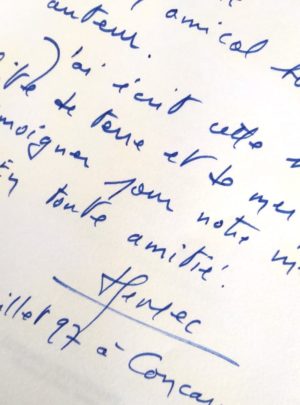 amical
auteur.
J'ai écrit cette
de terre et de mer
pour notre
En toute amitié!
97 à Concar